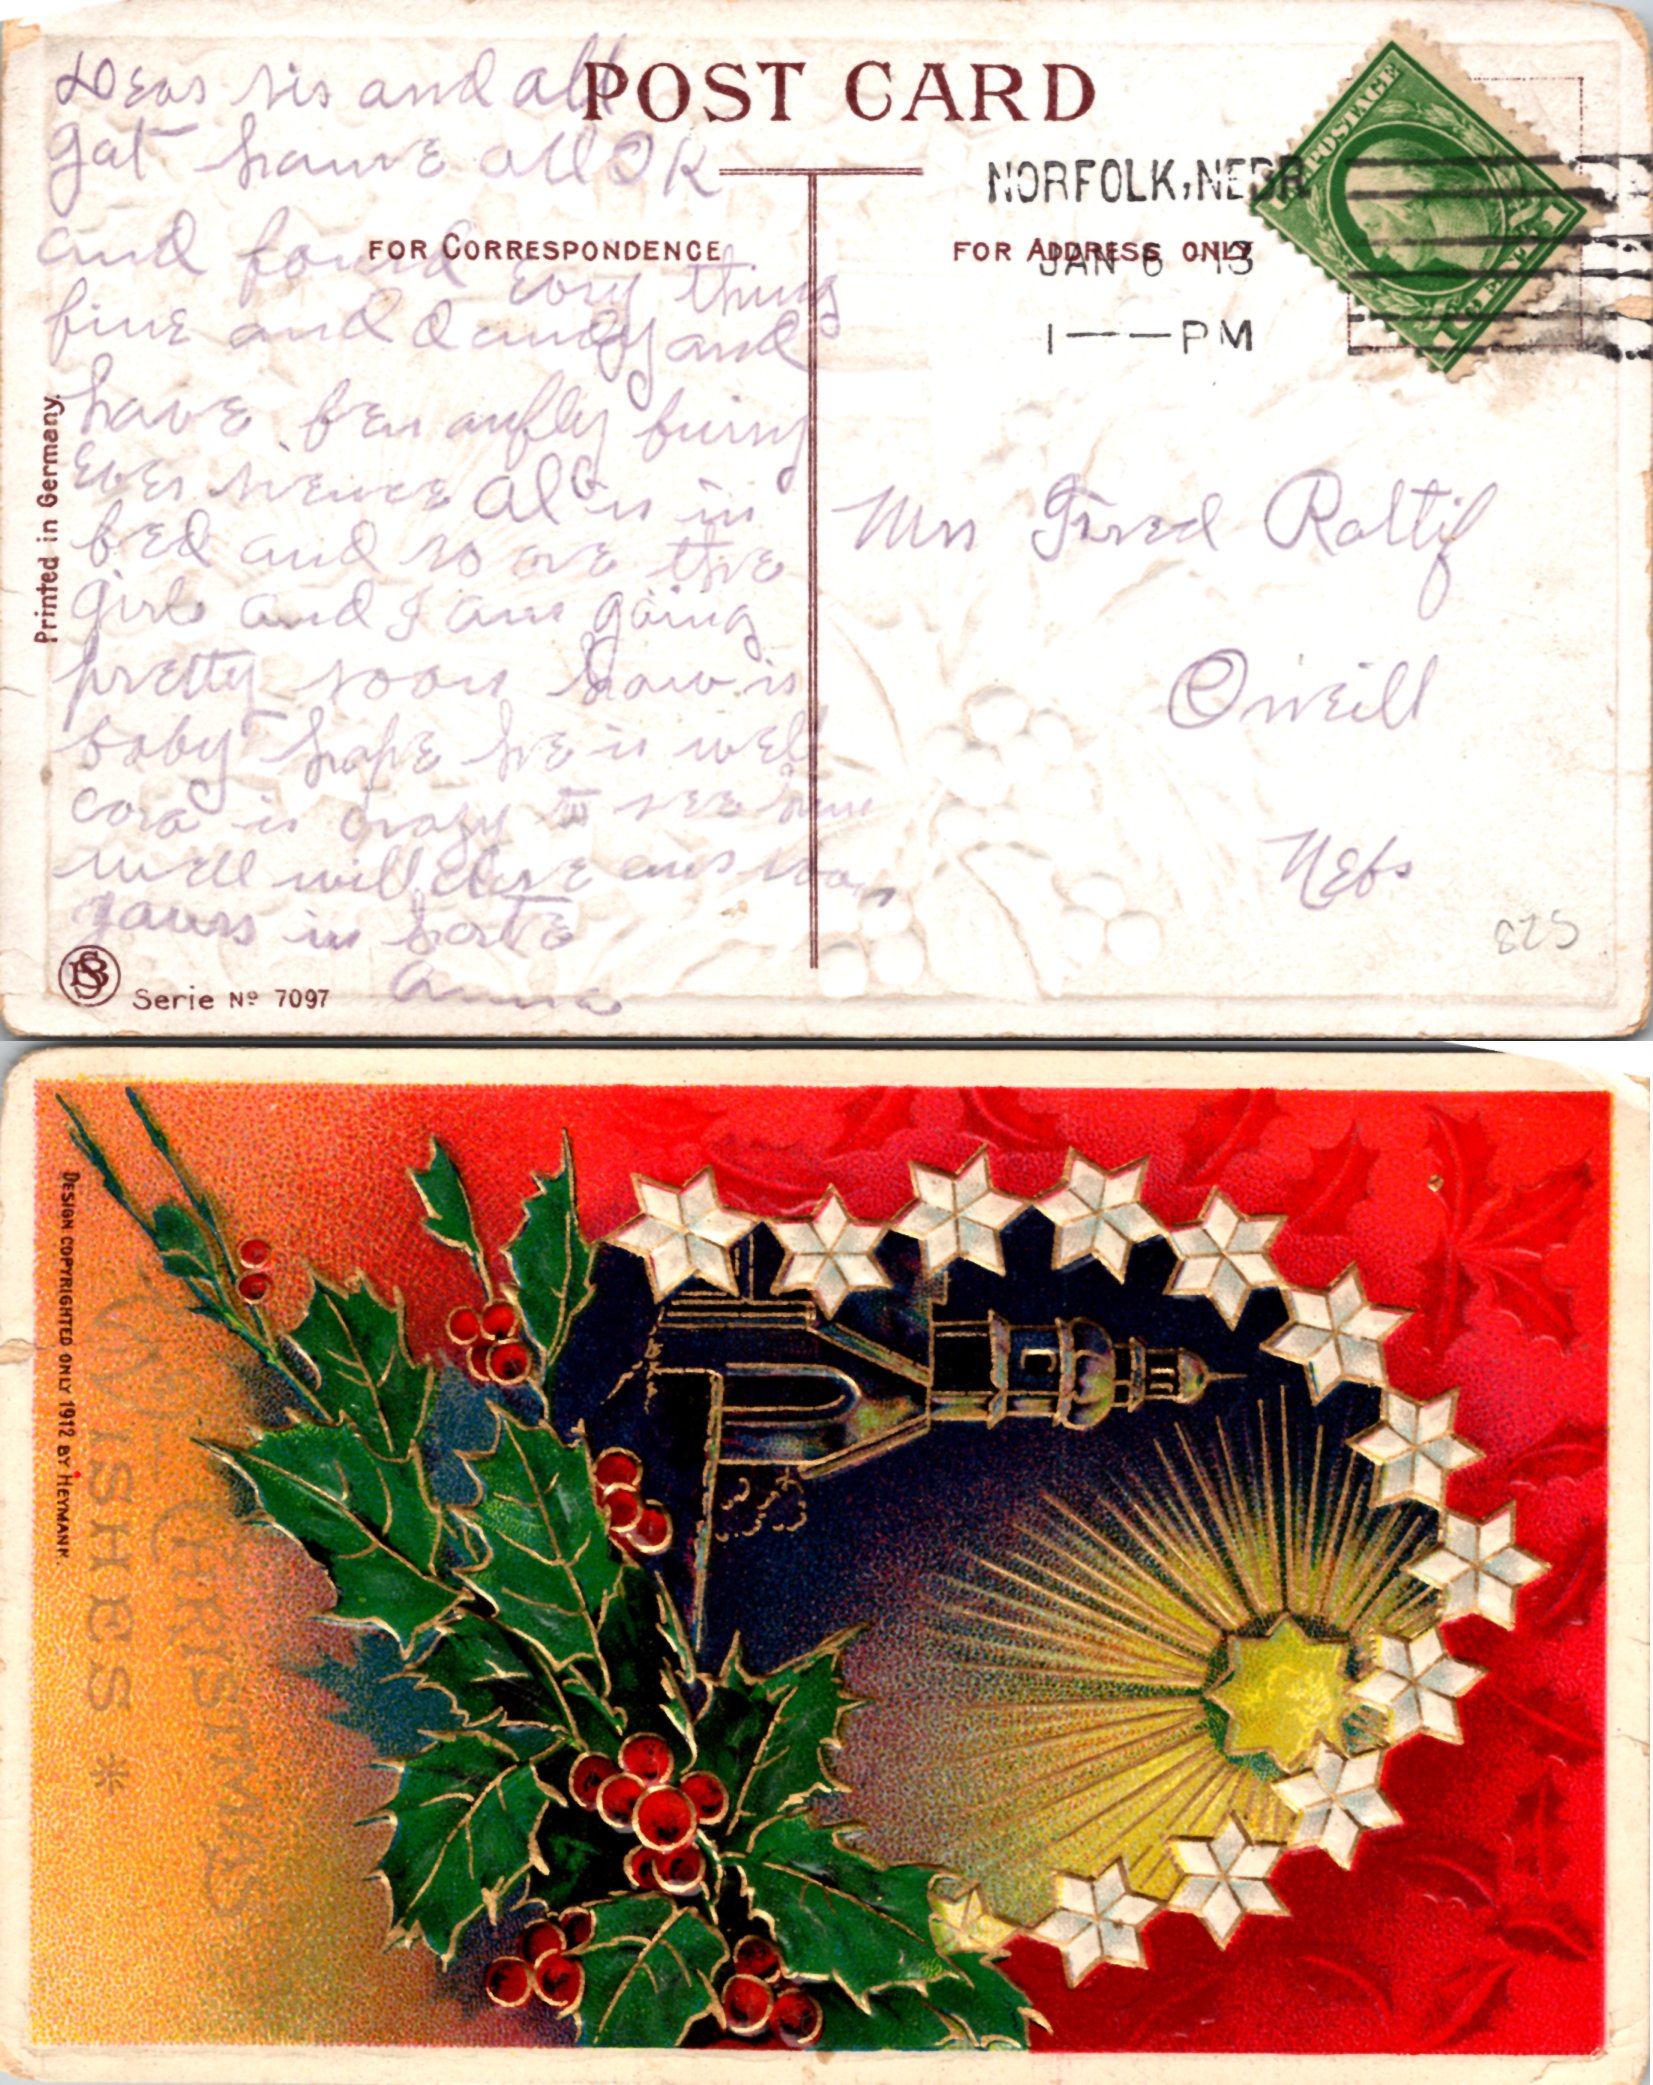 POST CARD
FOR CORRESPONDENCE
FOR ADDRESS ONLY
Dear sis and all
got home all OK
and found evry things
fine and dandy and
have ben aufly busy
ever sience Al is in
bed and so are the
girls and I am going
pretty soon how is
baby hope he is well
cora is crazy to see him
well will close ans soon
yours in haste
Anna
Printed in Germany.
SB
Serie No 7097
NORFOLK, NEBR.
JAN 6 13
1 — — PM
POSTAGE
1
Mrs Fred Ratlif
Oneill
Nebs
825
DESIGN COPYRIGHTED ONLY 1912 BY HEYMANN.
CHRISTMAS
WISHES *